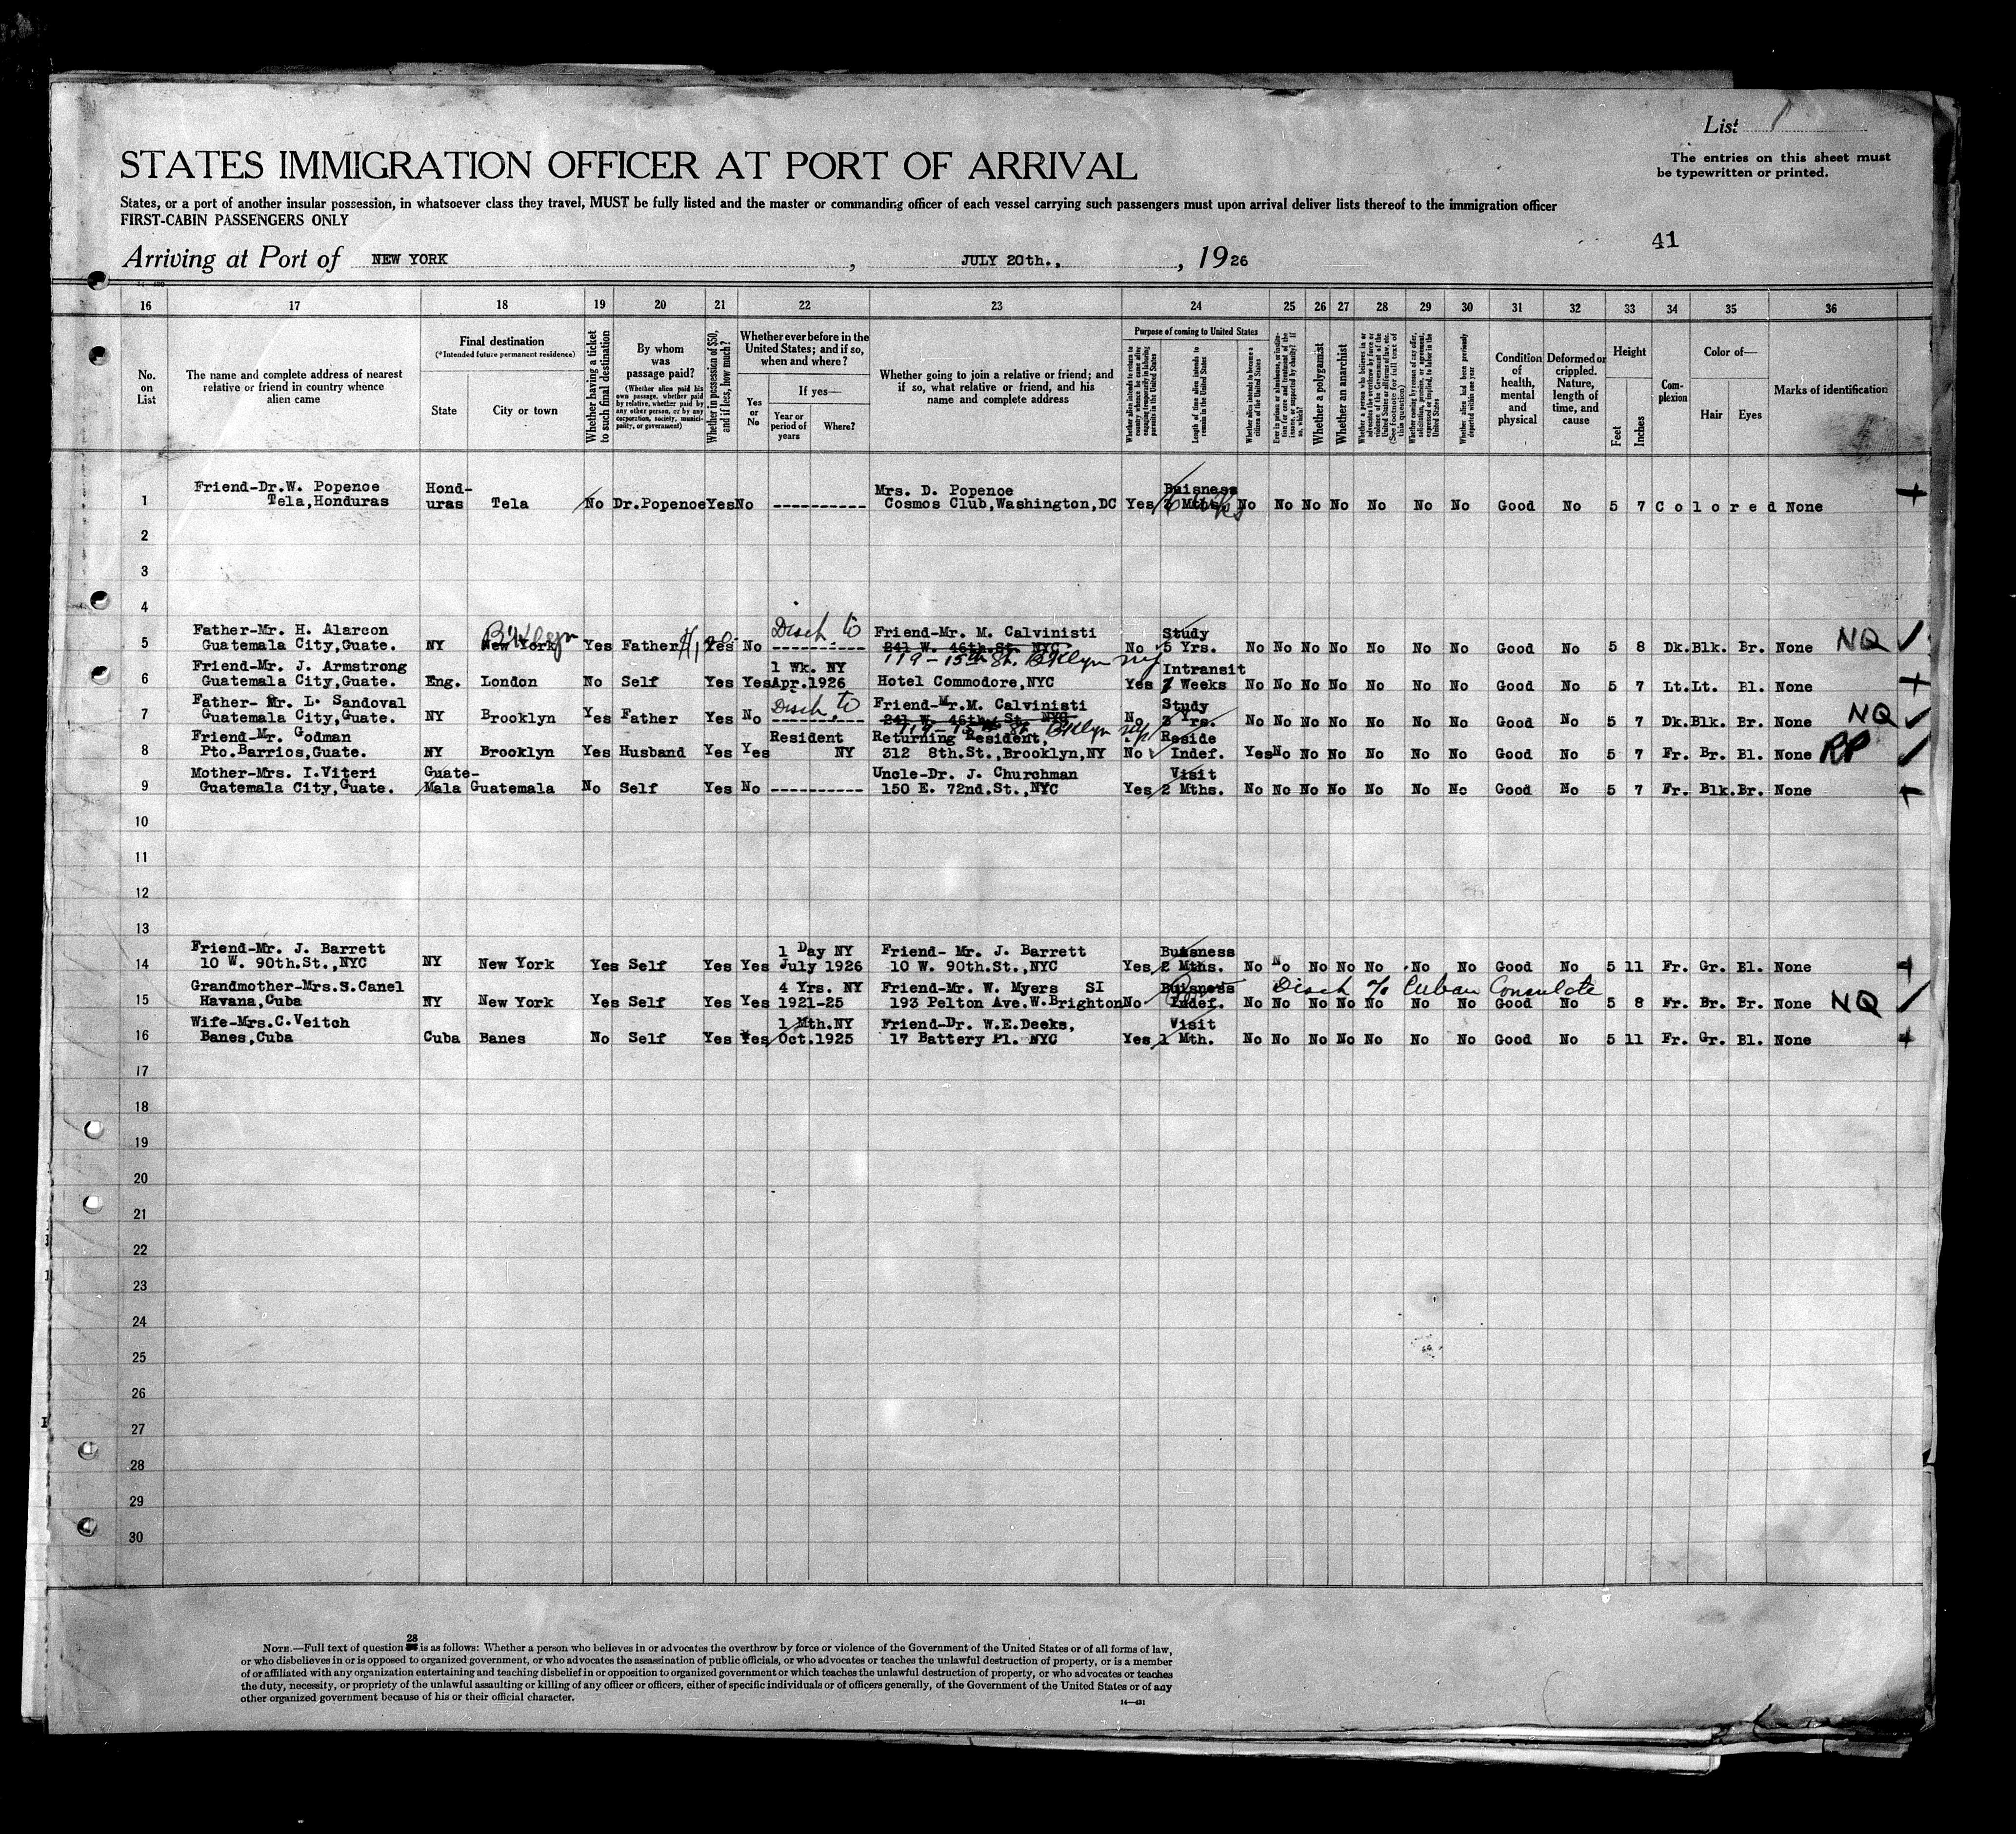 List 1
The entries on this sheet must
be typewritten or printed.
STATES IMMIGRATION OFFICER AT PORT OF ARRIVAL
States, or a port of another insular possession, in whatsoever class they travel, MUST be fully listed and the master or commanding officer of each vessel carrying such passengers must upon arrival deliver lists thereof to the immigration officer
FIRST-CABIN PASSENGERS ONLY
41
Arriving at Port of NEW YORK, JULY 20th., 1926
16 17 18 19 20 21 22 23 24 25 26 27 28 29 30 31 32 33 34 35 36
No. on List
The name and complete address of nearest relative or friend in country whence alien came
Final destination
(*Intended future permanent residence)
State
City or town
Whether having a ticket to such final destination
By whom was passage paid?
(Whether alien paid his own passage, whether paid by relative, whether paid by any other person, or by any corporation, society, municipality, or government)
Whether in possession of $50, and if less, how much?
Whether ever before in the United States; and if so, when and where?
Yes or No
If yes—
Year or period of years
Where?
Whether going to join a relative or friend; and if so, what relative or friend, and his name and complete address
Purpose of coming to United States
Whether alien intends to return to country whence he came after engaging temporarily in laboring pursuits in the United States
Length of time alien intends to remain in the United States
Whether alien intends to become a citizen of the United States
Whether a polygamist
Whether an anarchist
(See footnote for full text of this question)
Whether alien had been previously deported within one year
Condition of health, mental and physical
Deformed or crippled. Nature, length of time, and cause
Height
Feet
Inches
Complexion
Color of—
Hair
Eyes
Marks of identification
Friend-Dr.W. Popenoe Hond- Mrs. D. Popenoe Buisness
1 Tela,Honduras uras Tela No Dr.Popenoe Yes No ---------- Cosmos Club,Washington,DC Yes Mths. No No No No No No No Good No 5 7 Colored None +
2
3
4
Father-Mr. H. Alarcon B'klyn Disch to Friend-Mr. M. Calvinisti Study
5 Guatemala City,Guate. NY New York Yes Father Yes No ---------- 241 W. 46th.St. NYC 5 Yrs. No No No No No No No No Good No 5 8 Dk. Blk. Br. None NQ ✓
119-15th St. Bklyn NY
Friend-Mr. J. Armstrong 1 Wk. NY Intransit
6 Guatemala City,Guate. Eng. London No Self Yes Yes Apr.1926 Hotel Commodore,NYC Yes Weeks No No No No No No No Good No 5 7 Lt. Lt. Bl. None +
Father- Mr. L. Sandoval Disch. to Friend-Mr.M. Calvinisti Study
7 Guatemala City,Guate. NY Brooklyn Yes Father Yes No ---------- 241 W. 46th.St. NYC No Yrs. No No No No No No No Good No 5 7 Dk. Blk. Br. None NQ ✓
119-15th St. Bklyn NY
Friend-Mr. Godman Resident Returning Resident, Reside
8 Pto.Barrios,Guate. NY Brooklyn Yes Husband Yes Yes NY 312 8th.St.,Brooklyn,NY No Indef. Yes No No No No No No Good No 5 7 Fr. Br. Bl. None RP ✓
Mother-Mrs. I.Viteri Guate- Uncle-Dr. J. Churchman Visit
9 Guatemala City,Guate. Mala Guatemala No Self Yes No ---------- 150 E. 72nd.St.,NYC Yes 2 Mths. No No No No No No No Good No 5 7 Fr. Blk. Br. None +
10
11
12
13
Friend-Mr. J. Barrett 1 Day NY Friend- Mr. J. Barrett Buisness
14 10 W. 90th.St.,NYC NY New York Yes Self Yes Yes July 1926 10 W. 90th.St.,NYC Yes 2 Mths. No No No No No No No Good No 5 11 Fr. Gr. Bl. None +
Grandmother-Mrs.S.Canel 4 Yrs. NY Friend-Mr. W. Myers SI Buisness Disch % Cuban Consulate
15 Havana,Cuba NY New York Yes Self Yes Yes 1921-25 193 Pelton Ave.W.Brighton No Indef. No No No No No No No Good No 5 8 Fr. Br. Br. None NQ ✓
Wife-Mrs.C.Veitch 1 Mth.NY Friend-Dr. W.E.Deeks, Visit
16 Banes,Cuba Cuba Banes No Self Yes Yes Oct.1925 17 Battery Pl. NYC Yes 1 Mth. No No No No No No No Good No 5 11 Fr. Gr. Bl. None +
17
18
19
20
21
22
23
24
25
26
27
28
29
30
28
NOTE.—Full text of question is as follows: Whether a person who believes in or advocates the overthrow by force or violence of the Government of the United States or of all forms of law,
or who disbelieves in or is opposed to organized government, or who advocates the assassination of public officials, or who advocates or teaches the unlawful destruction of property, or is a member
of or affiliated with any organization entertaining and teaching disbelief in or opposition to organized government or which teaches the unlawful destruction of property, or who advocates or teaches
the duty, necessity, or propriety of the unlawful assaulting or killing of any officer or officers, either of specific individuals or of officers generally, of the Government of the United States or of any
other organized government because of his or their official character.
14—431